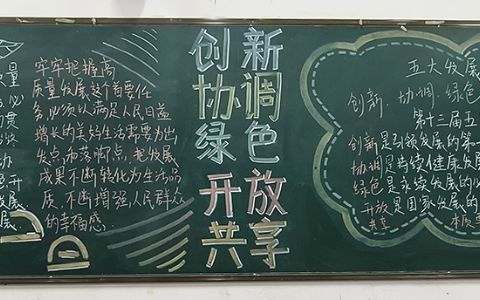 质量
必
贯
办
色开
发展
发展.
牢牢把握高
质量发展这个首要任
务,必须以满足人民日益
增长的美好生活需要为出
发点和落脚点,把发展
成果不断转化为生活品
质,不断增强人民群众
的幸福感.
创新
协调
绿色
开放
共享
五大发展
创新.协调.绿色
第十三届五
创新是引领发展的第一
协调是持续健康发展
绿色是永续发展的必
开放是国家发展的
共享 本质